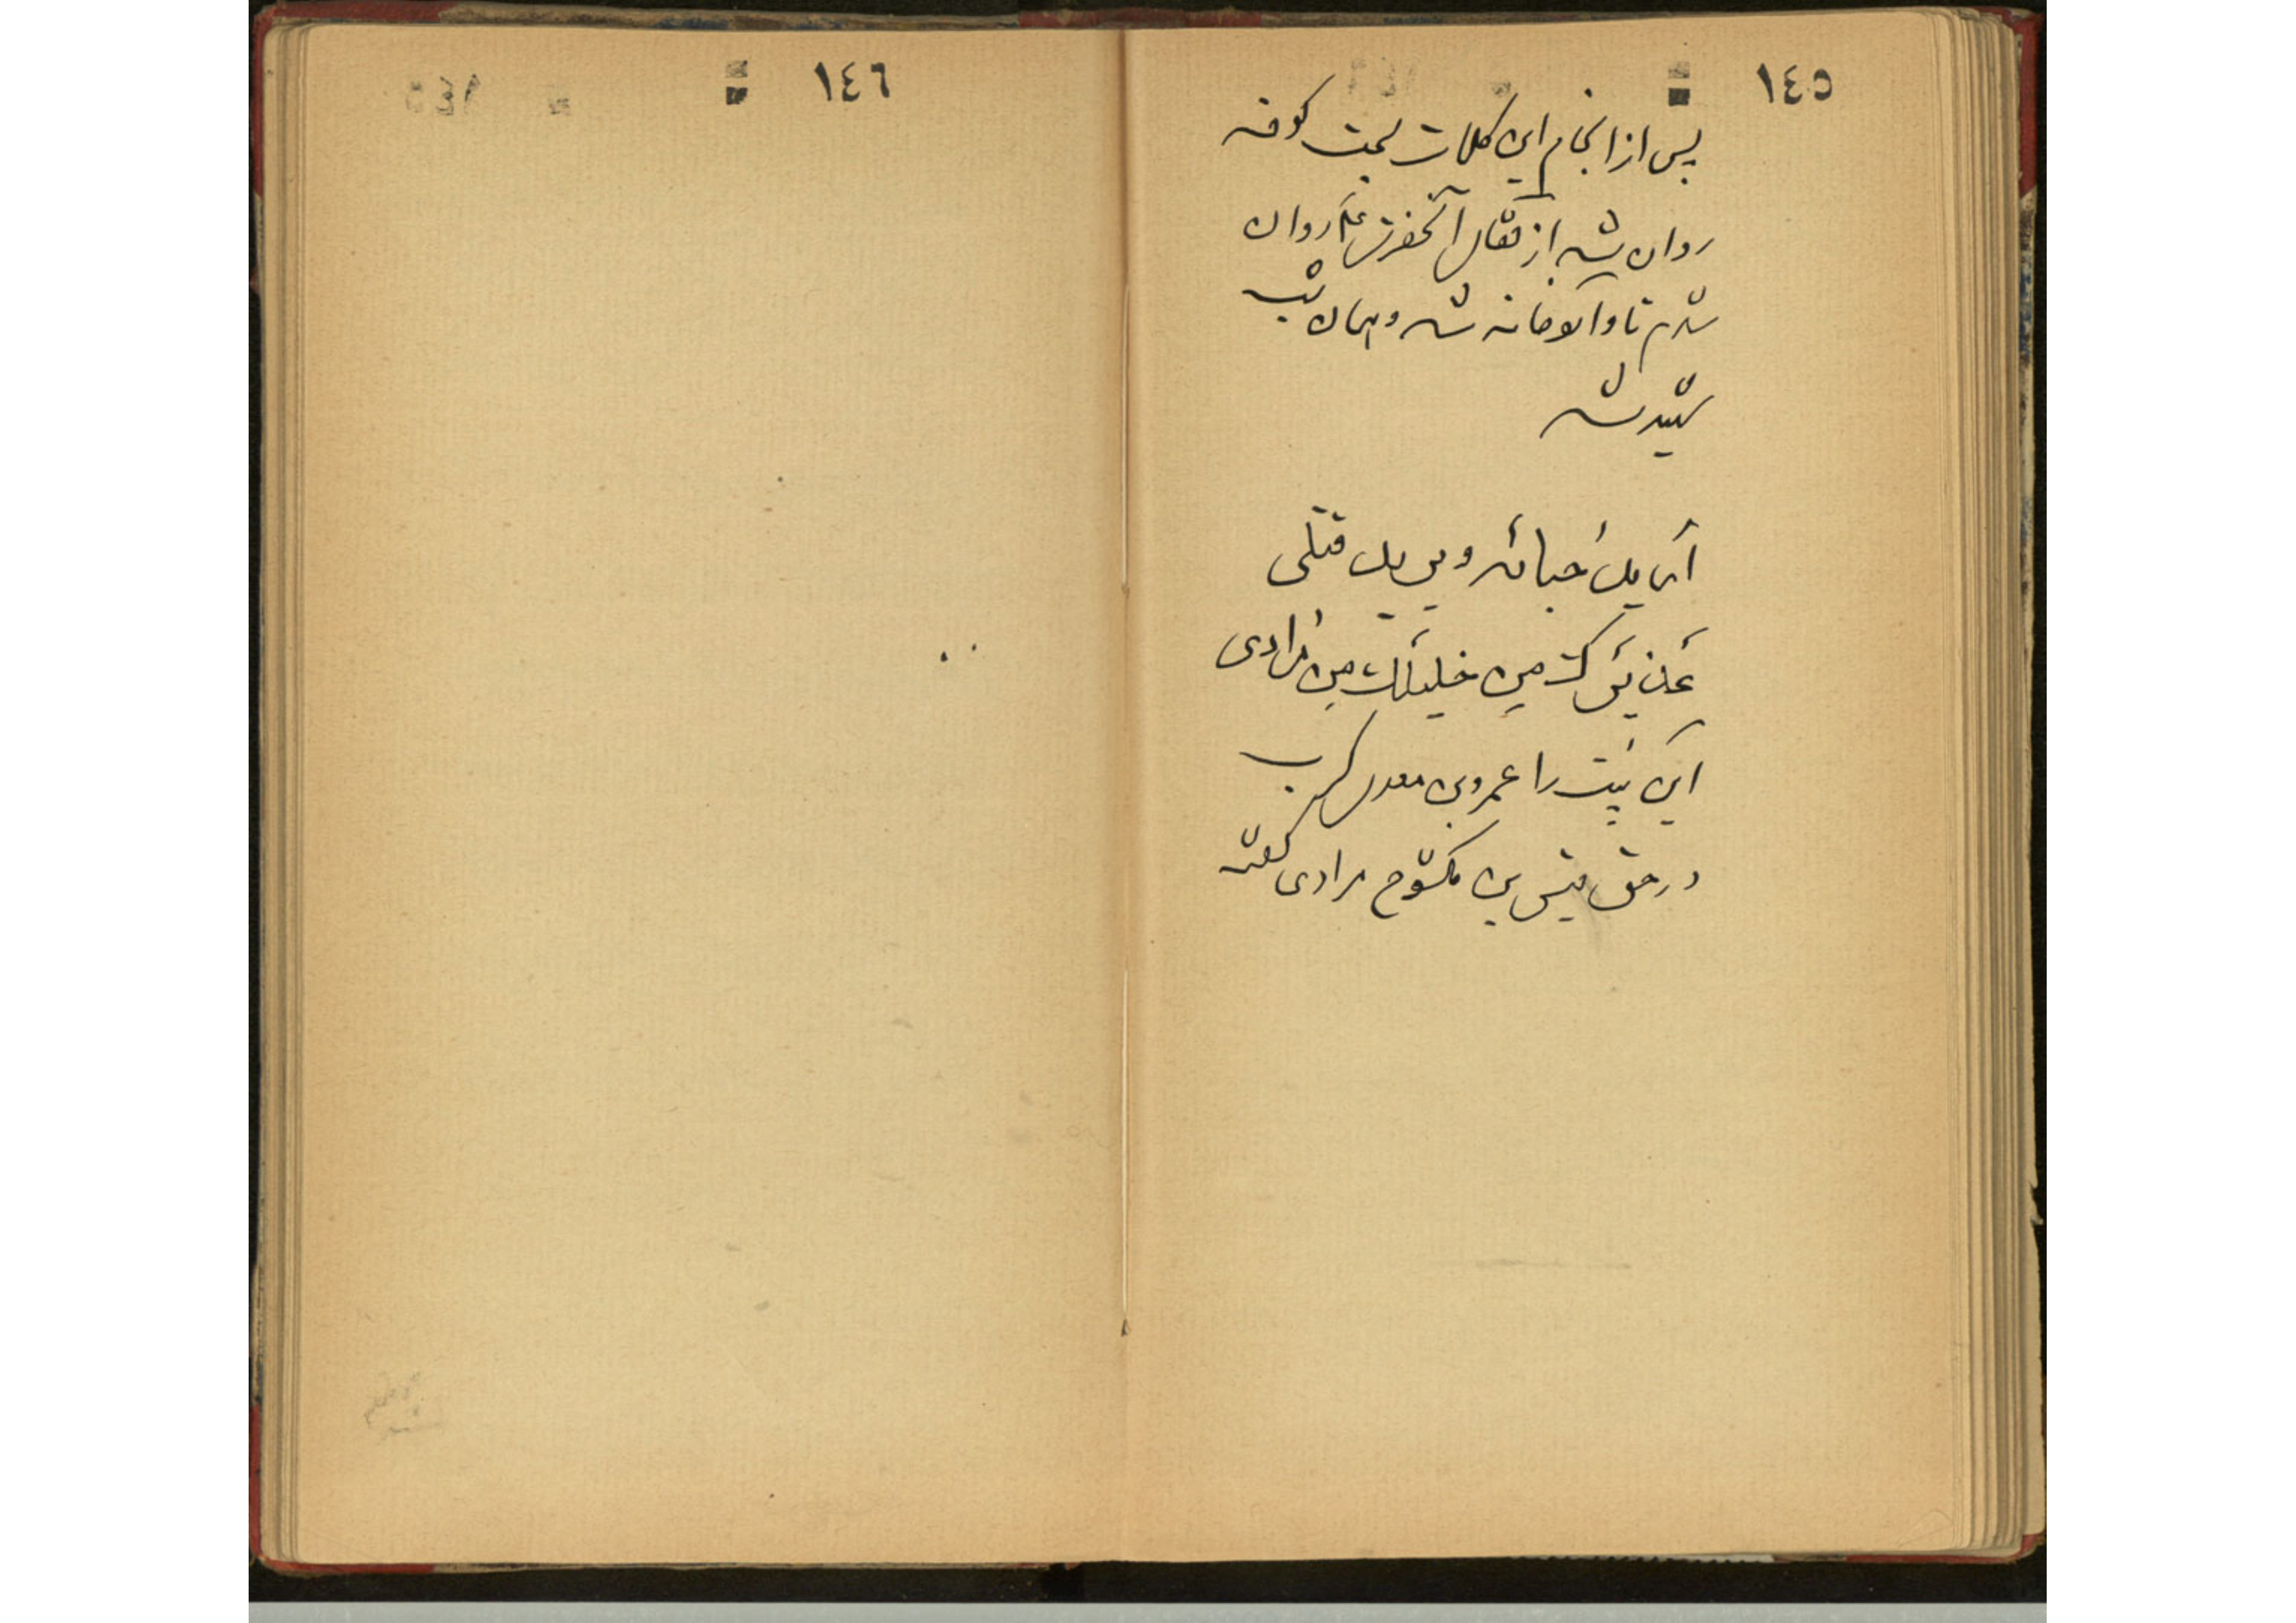 ١٤٥
پس از انجام این کلمات بسمت کوفه
روان شد از قفای آنحضرت علیه روان
شدم تا واکوفانه شد و همان شب
شهید شد
أُریدُ حَباتَه ویرید قتلی
عَذیرَكَ مِن خَلیلِكَ مِن مُرادی
این بَیت را عمروبن معدی کرب
در حق قیس بن مکشوح مرادی گفته
١٤٦